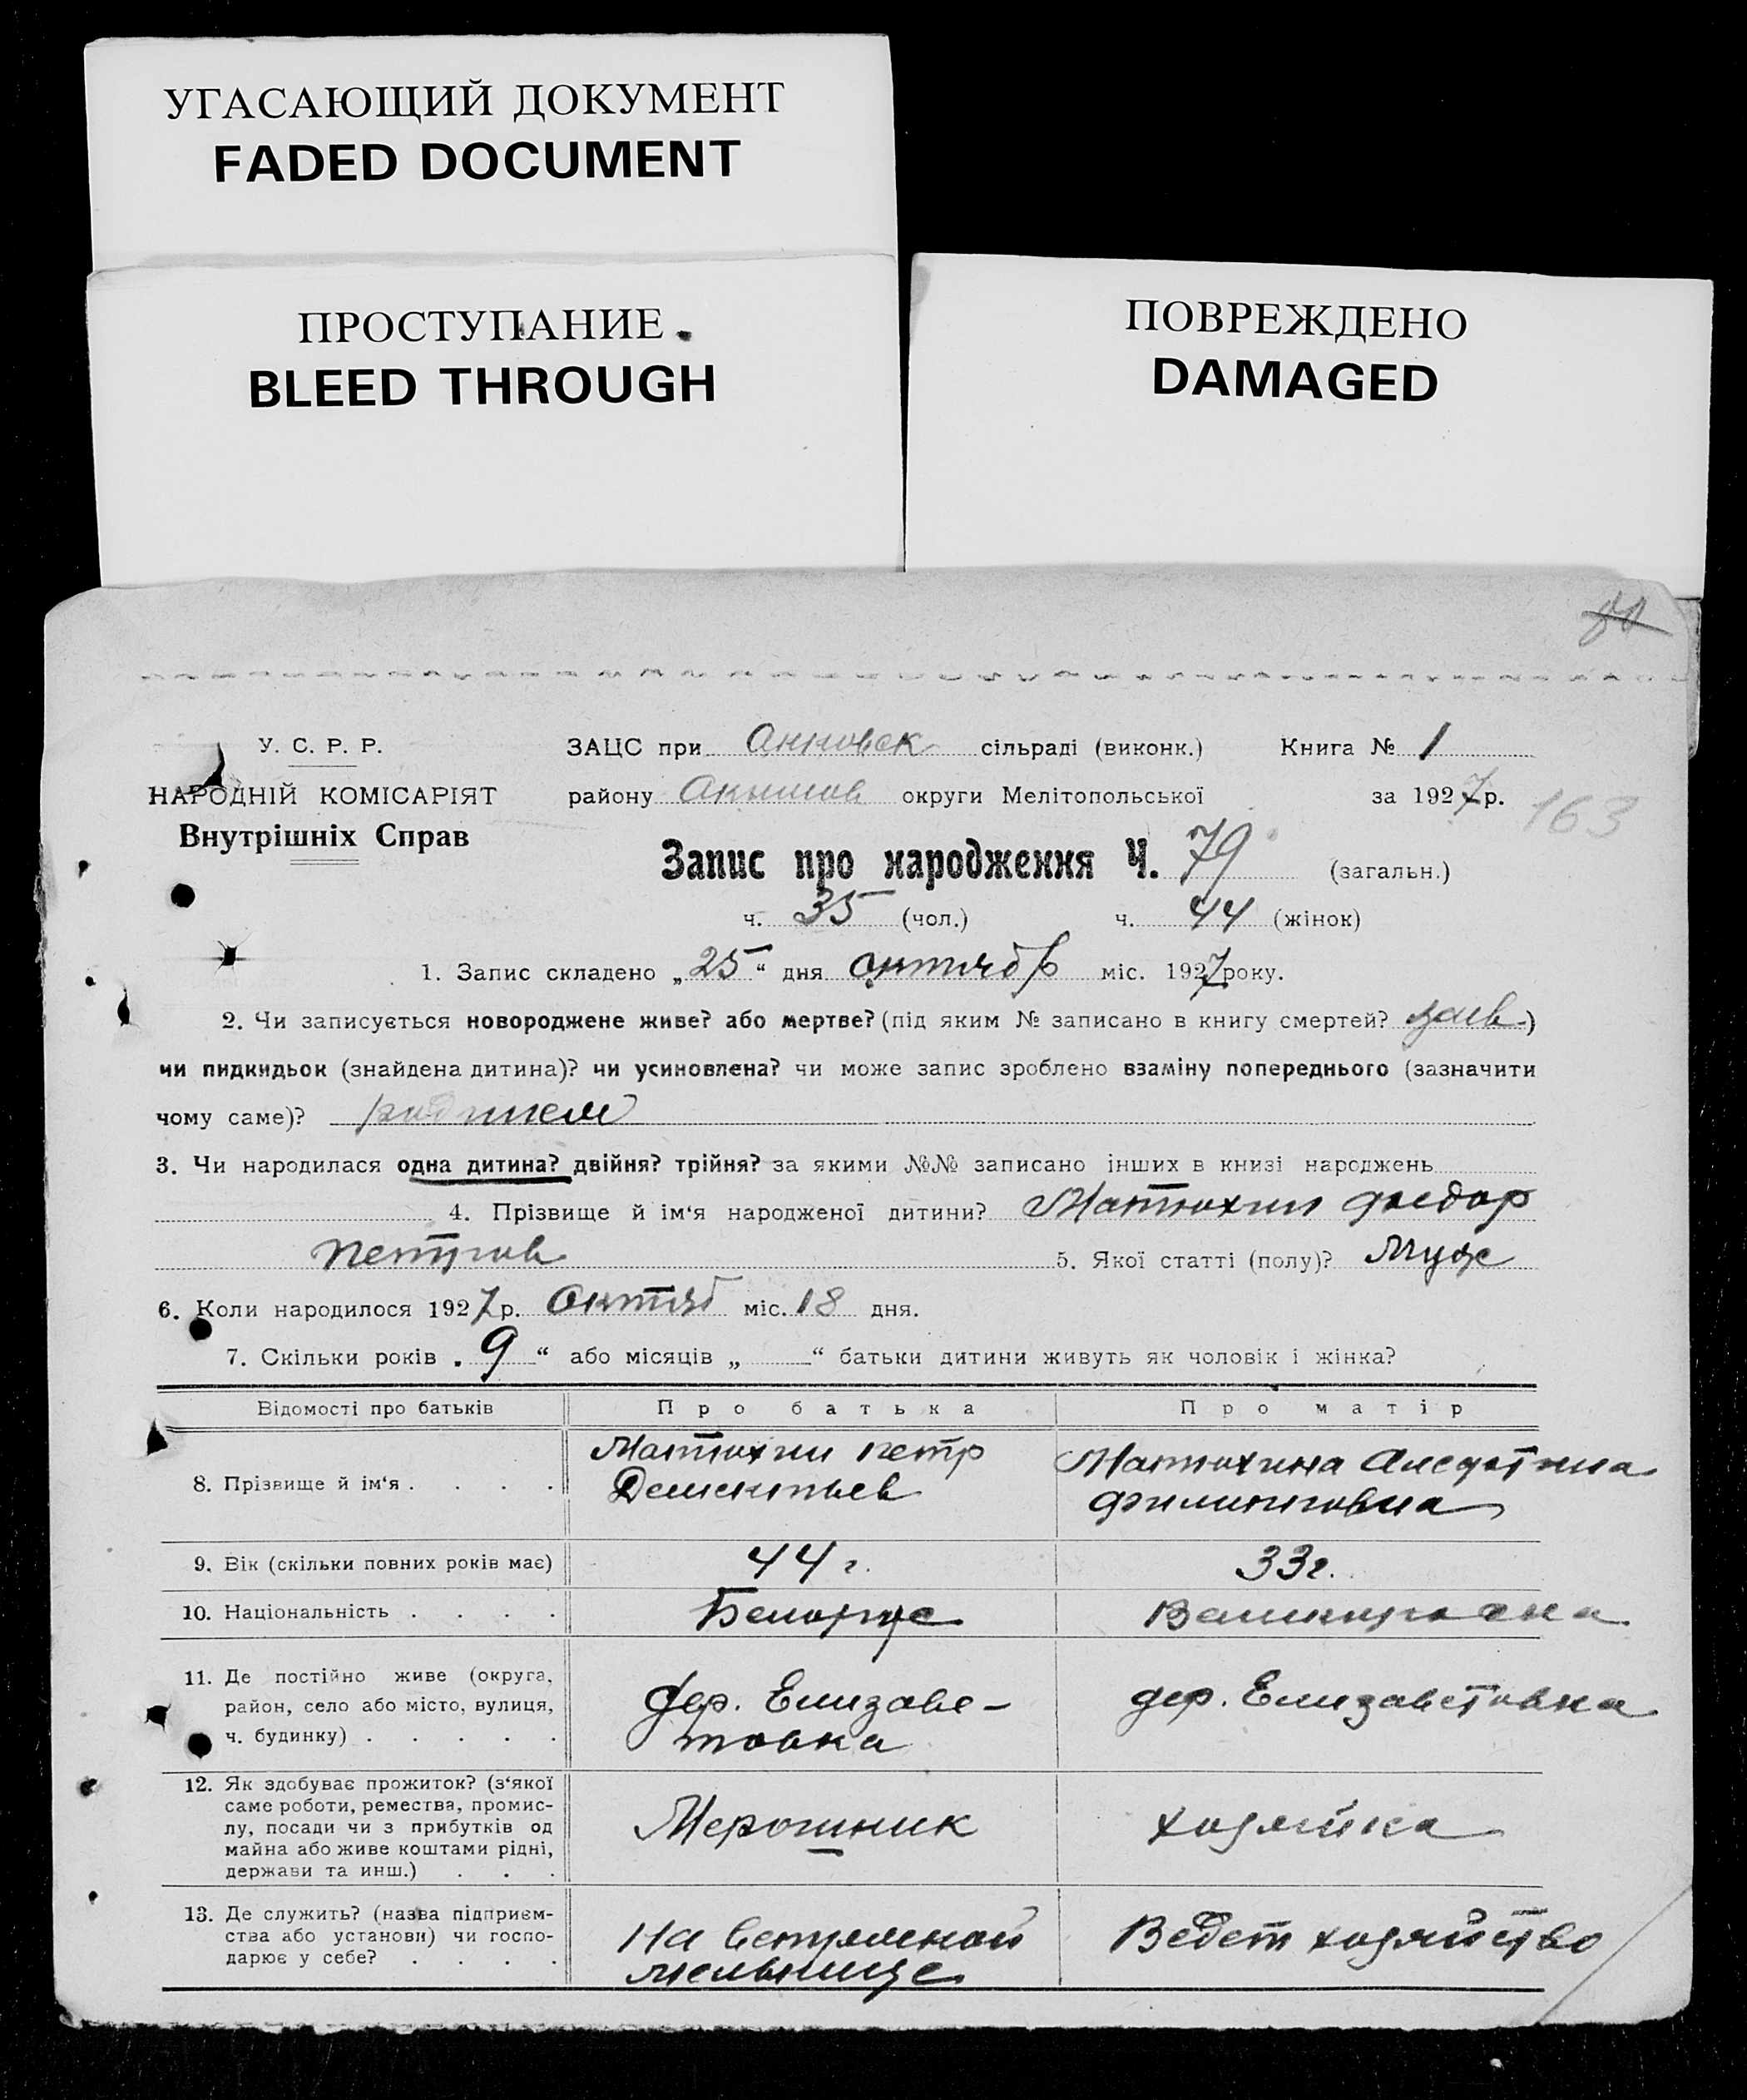 УГАСАЮЩИЙ ДОКУМЕНТ
FADED DOCUMENT
ПРОСТУПАНИЕ
BLEED THROUGH
ПОВРЕЖДЕНО
DAMAGED
У. С. Р. Р.
НАРОДНІЙ КОМІСАРІЯТ
Внутрішніх Справ
ЗАЦС при Анновск сільраді (виконк.) Книга № 1
району Акимов округи Мелітопольської за 1927 р. 163
Запис про народження Ч. 79 (загальн.)
ч. 35 (чол.) ч. 44 (жінок)
1. Запис складено „25“ дня октябр міс. 1927 року.
2. Чи записується новороджене живе? або мертве? (під яким № записано в книгу смертей?)
чи пидкидьок (знайдена дитина)? чи усиновлена? чи може запис зроблено взаміну попереднього (зазначити
чому саме)?
3. Чи народилася одна дитина? двійня? трійня? за якими №№ записано інших в книзі народжень
4. Прізвище й ім‘я народженої дитини? Матюхин Федор
Петров 5. Якої статті (полу)? Муж
6. Коли народилося 1927 р. Октяб міс. 18 дня.
7. Скільки років „9“ або місяців „ “ батьки дитини живуть як чоловік і жінка?
Відомості про батьків Про батька Про матір
8. Прізвище й ім‘я . . . .
Матюхин Петр
Дементьев
Матюхина
Филипповна
9. Вік (скільки повних років має) 44 г. 33 г.
10. Національність . . . . Белорус Великороска
11. Де постійно живе (округа,
район, село або місто, вулиця,
ч. будинку) . . . . .
дер. Елизаве-
товка
дер. Елизаветовка
12. Як здобуває прожиток? (з‘якої
саме роботи, ремества, промис-
лу, посади чи з прибутків од
майна або живе коштами рідні,
держави та инш.) . . .
Мерошник
хозяйка
13. Де служить? (назва підприєм-
ства або установи) чи госпо-
дарює у себе? . . . .
На ветряной
мельнице
Ведет хозяйство